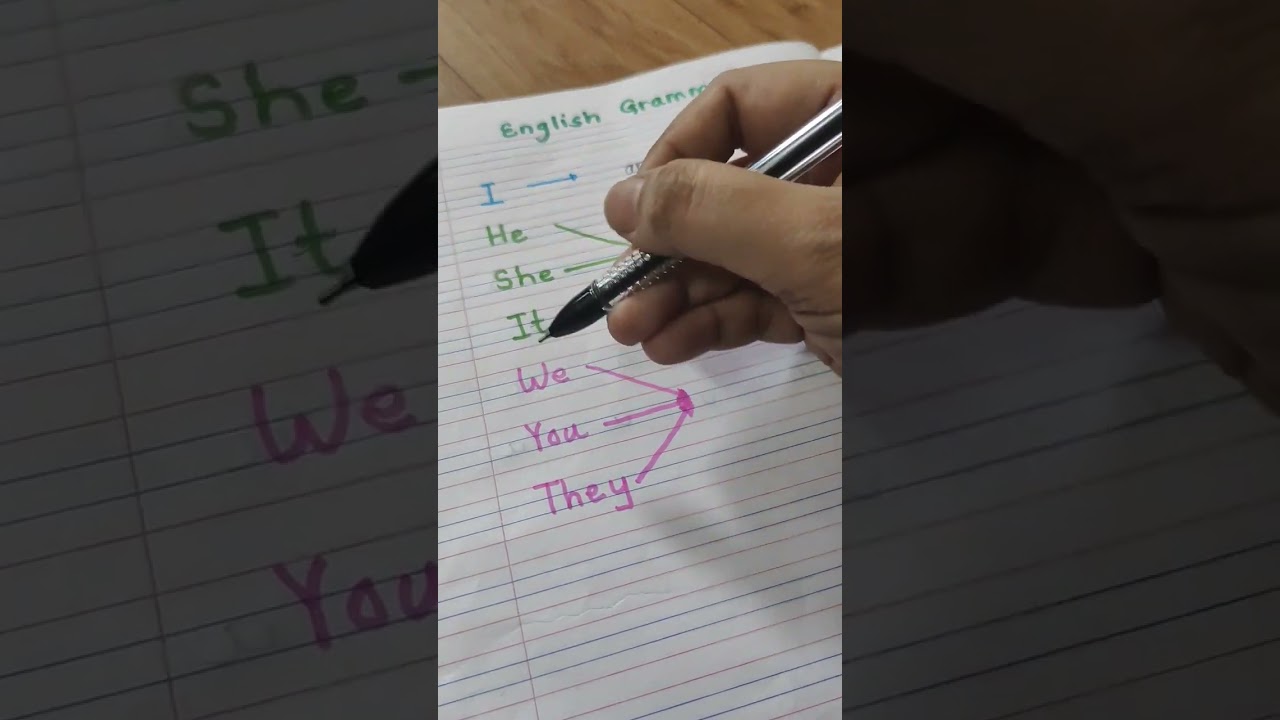 English
I
He
She
It
We
You
They